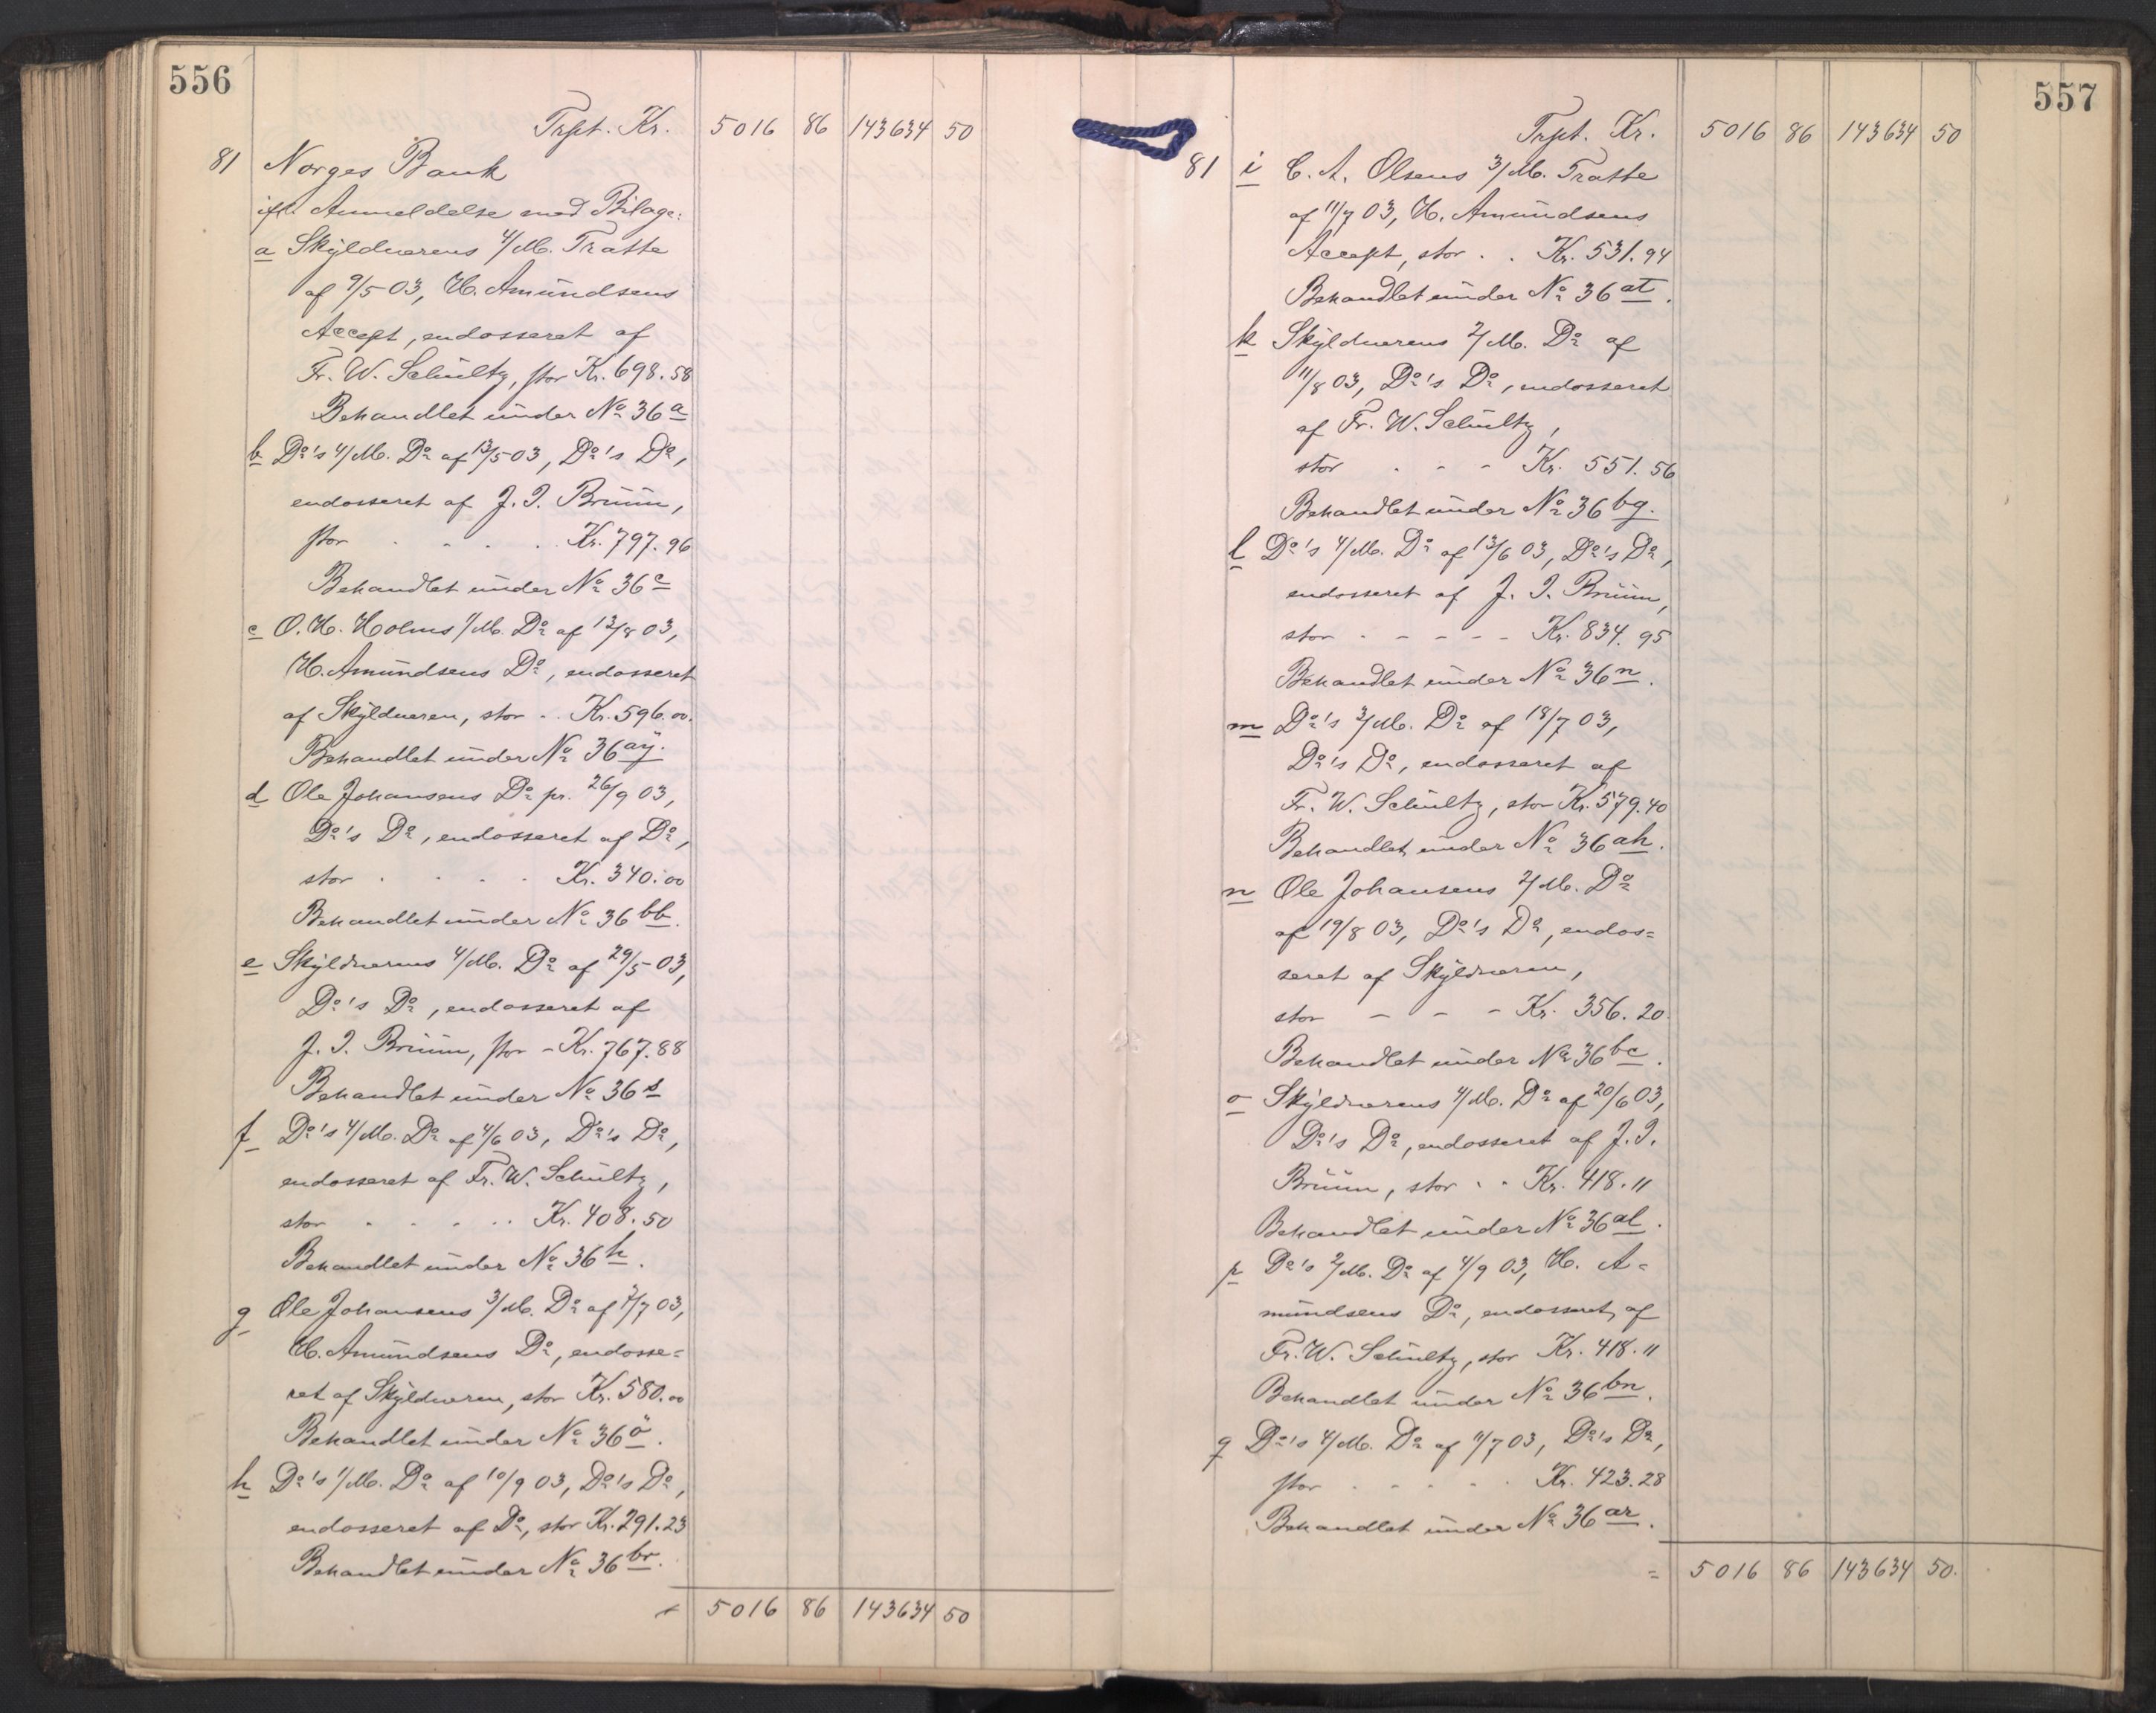 556
Trpt. Kr. 5016 86 143634 50
81 Norges Bank
ifl. Anmeldelse med Bilage:
a Skyldnerens 4/M. Tratte
af 9/5 03, H. Amundsens
Accept, endosseret af
Fr. W. Schultz, stor Kr. 698.58
Behandlet under No 36 a
b Do's 4/M. Do af 13/5 03, Do's Do,
endosseret af J. I. Bruun,
stor . . . . . Kr. 797.96
Behandlet under No 36 c
c O. H. Holms 1/M. Do af 12/8 03,
H. Amundsens Do, endosseret
af Skyldneren, stor . . Kr. 596.00.
Behandlet under No 36 ay.
d Ole Johansens Do pr. 26/9 03,
Do's Do, endosseret af Do,
stor . . . . . Kr. 340.00
Behandlet under No 36 bb.
e Skyldnerens 4/M. Do af 29/5 03,
Do's Do, endosseret af
J. I. Bruun, stor - Kr. 767.88
Behandlet under No 36 s
f Do's 4/M. Do af 4/6 03, Do's Do,
endosseret af Fr. W. Schultz,
stor . . . . . . Kr. 408.50
Behandlet under No 36 h.
g Ole Johansens 3/M. Do af 7/7 03,
H. Amundsens Do, endosse=
ret af Skyldneren, stor Kr. 580.00
Behandlet under No 36 ö.
h Do's 1/M. Do af 10/9 03, Do's Do,
endosseret af Do, stor Kr. 291.23
Behandlet under No 36 br.
5016 86 143634 50
557
Trpt. Kr. 5016 86 143634 50
81 i C. A. Olsens 3/M. Tratte
af 11/7 03, H. Amundsens
Accept, stor . . Kr. 531.94
Behandlet under No 36 at.
k Skyldnerens 2/M. Do af
11/8 03, Do's Do, endosseret
af Fr. W. Schultz,
stor . - - Kr. 551.56
Behandlet under No 36 bg.
l Do's 4/M. Do af 13/6 03, Do's Do,
endosseret af J. I. Bruun,
stor - - - - - Kr. 834.95
Behandlet under No 36 n.
m Do's 3/M. Do af 18/7 03,
Do's Do, endosseret af
Fr. W. Schultz, stor Kr. 579.40
Behandlet under No 36 ah.
n Ole Johansens 2/M. Do
af 19/8 03, Do's Do, endos=
seret af Skyldneren,
stor - - - Kr. 356.20.
Behandlet under No 36 bc.
o Skyldnerens 4/M. Do af 20/6 03,
Do's Do, endosseret af J. I.
Bruun, stor . . Kr. 418.11
Behandlet under No 36 al.
p Do's 2/M. Do af 4/9 03, H. A=
mundsens Do, endosseret af
Fr. W. Schultz, stor Kr. 418.11
Behandlet under No 36 bn.
q Do's 4/M. Do af 11/7 03, Do's Do,
stor . . . . . Kr. 423.28
Behandlet under No 36 ar.
= 5016 86 143634 50.